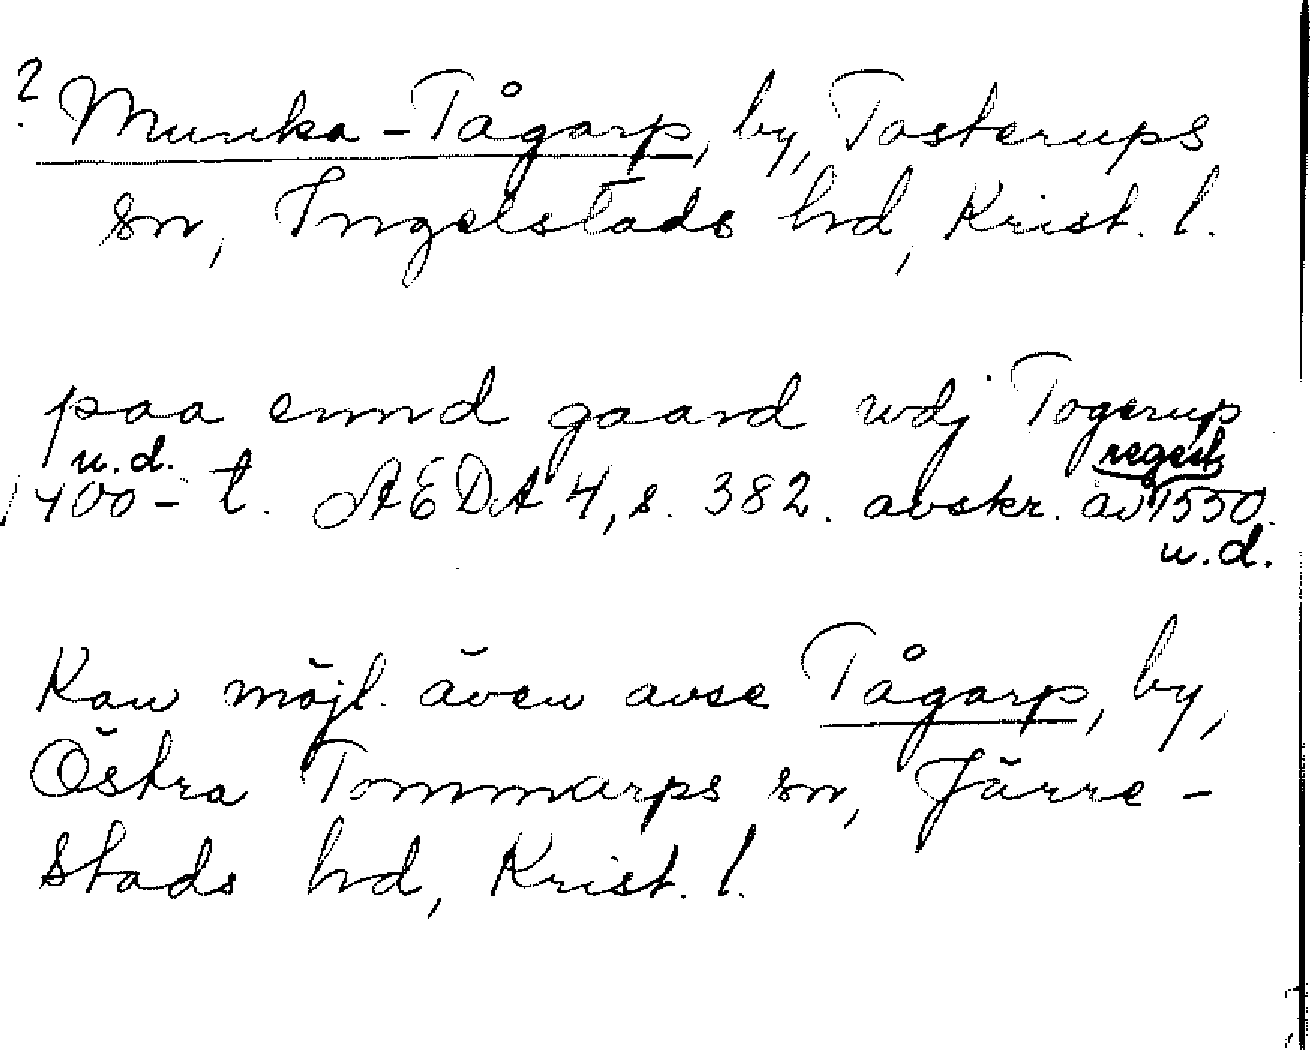 ? Munka-Tågarp, by, Tosterups
sn, Ingelstads hd, Krist. l.
paa ennd gaard wdj Togerup
u.d.
1400-t. ÆDA 4, s. 382. avskr. av 1550.
regest
u.d.
Kan möjl. även avse Tågarp, by,
Östra Tommarps sn, Järre-
stads hd, Krist. l.